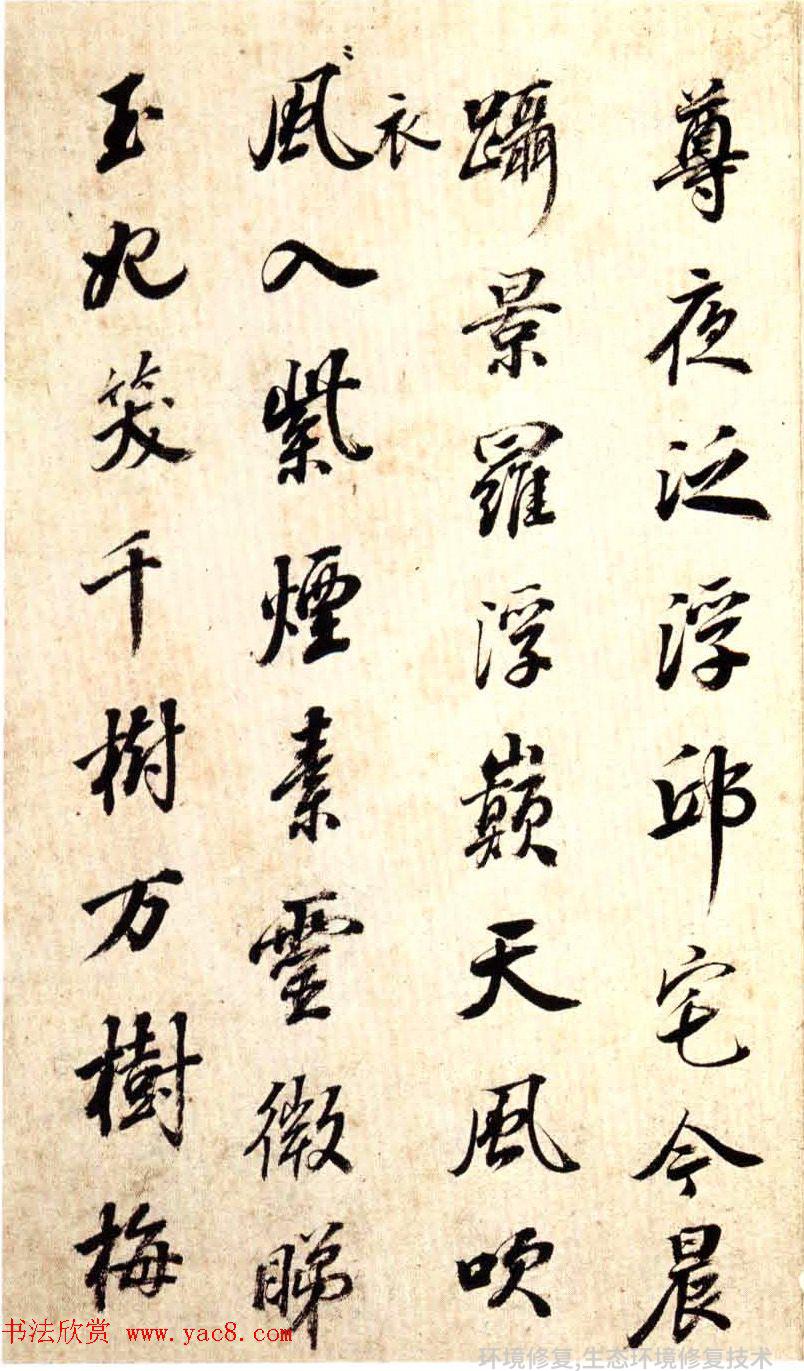 尊夜泛浮邱宅今晨
躡景羅浮巔天風吹
衣
風入紫煙素霊微睇
玉妃笑千樹万樹梅
书法欣赏 www.yac8.com
环境修复,生态环境修复技术